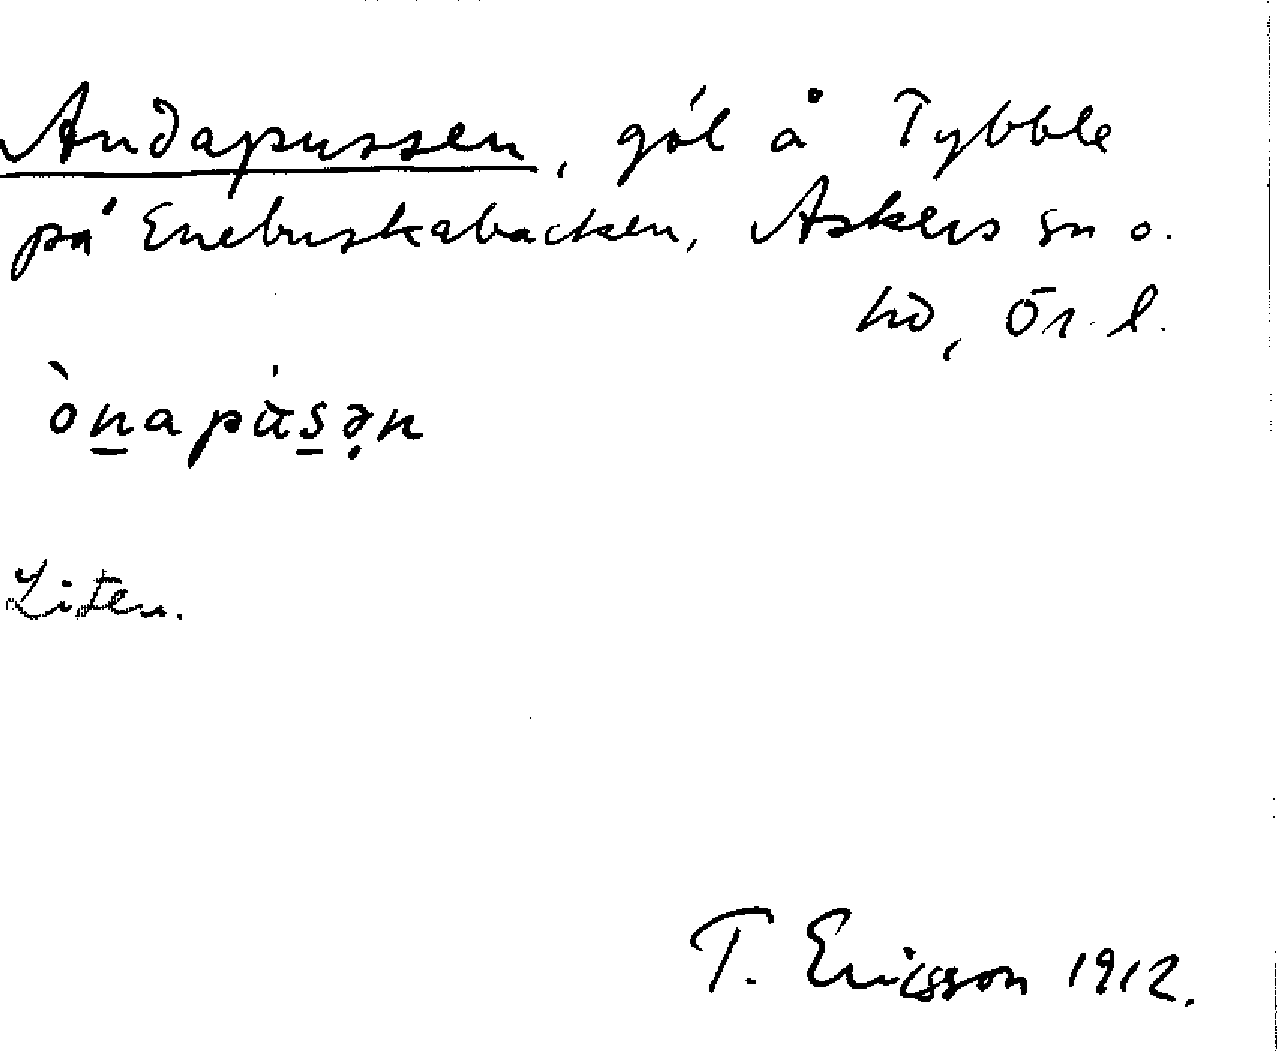 Andapussen, göl å Tybble
på Enebuskabacken, Askers sn o.
hd, Ör. l.
ònapùsən
Liten.
T. Ericsson 1912.